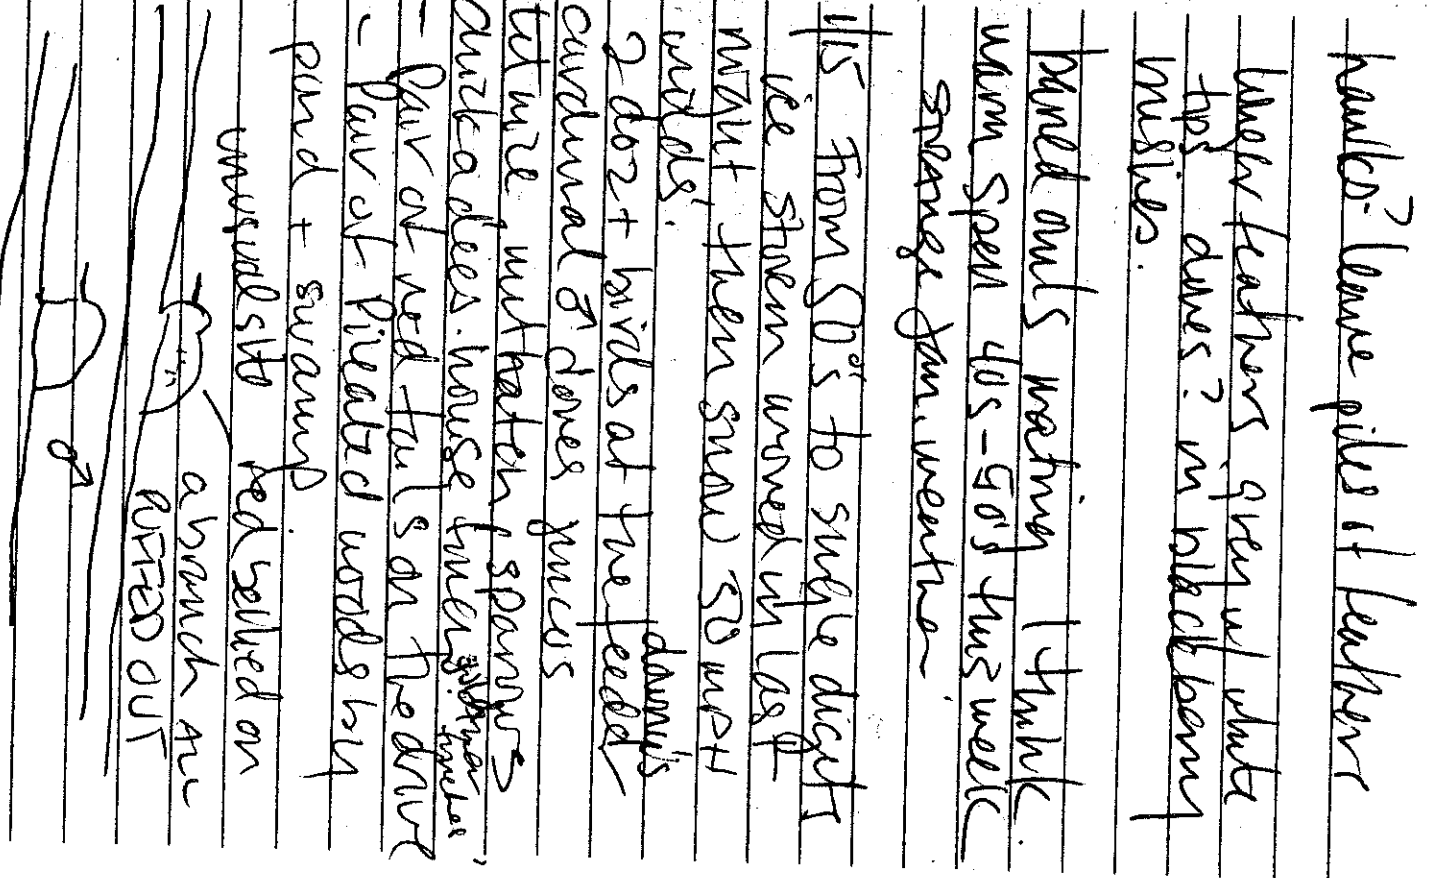 hawks? leave piles of feathers
when feathers grey w/ white
tips doves? in blackberry
bushes.
barred owls mating I think
warm spell 40s-50s this week
strange Jan. weather
1/15 From 50°s to single digits
ice storm moved in last
night then snow 50 mph
winds.
2 doz+ birds at the feeder
downy's
cardinal ♂ doves juncos
titmice, nuthatch, sparrows
chickadees. house finch.
- Pair of red tails on the drive
- pair of Pileated woods by
pond + swamp
unusual sit red bellied on
a branch all
PUFFED OUT
♂